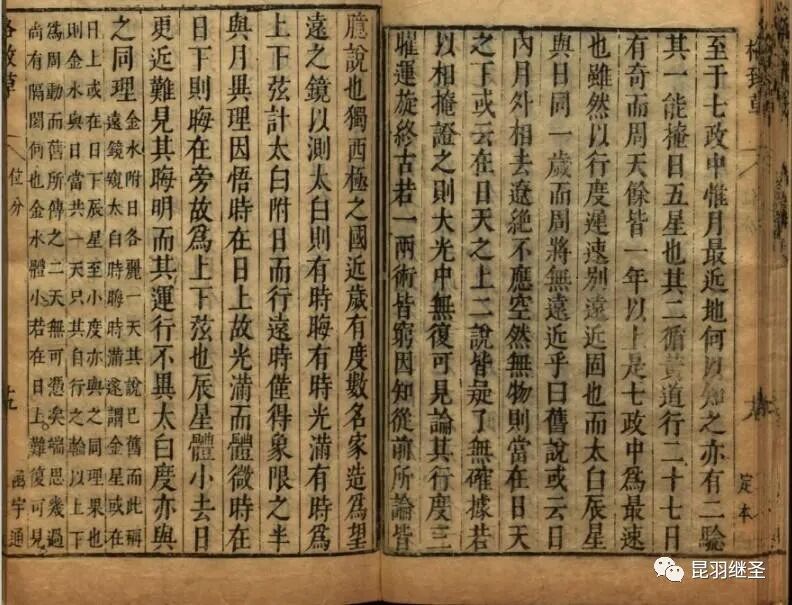 格致草
定本
至于七政中惟月最近地何以知之亦有二驗
其一能掩日五星也其二循黃道行二十七日
有奇而周天餘皆一年以上是七政中爲最速
也雖然以行度遲速別遠近固也而太白辰星
與日同一歲而周將無遠近乎曰舊說或云日
內月外相去遼絕不應空然無物則當在日天
之下或云在日天之上二說皆疑了無確據若
以相掩證之則大光中無復可見論其行度三
曜運旋終古若一兩術皆窮因知從前所論皆
臆說也獨西極之國近歲有度數名家造爲望
遠之鏡以測太白則有時晦有時光滿有時爲
上下弦計太白附日而行遠時僅得象限之半
與月異理因悟時在日上故光滿而體微時在
日下則晦在旁故爲上下弦也辰星體小去日
更近難見其晦明而其運行不異太白度亦與
之同理
金水附日各麗一天其說已舊而此稱
遠鏡窺太白時晦時滿遂謂金星或在
日上或在日下辰星至小度亦與之同理果也
則金水與日當共一天只其自行之輪以上下
爲周動而舊所傳之二天無可憑矣端思幾過
尚有隔閡何也金水體小若在日上難復可見
格致草
位分
十九
函宇通
昆羽继圣